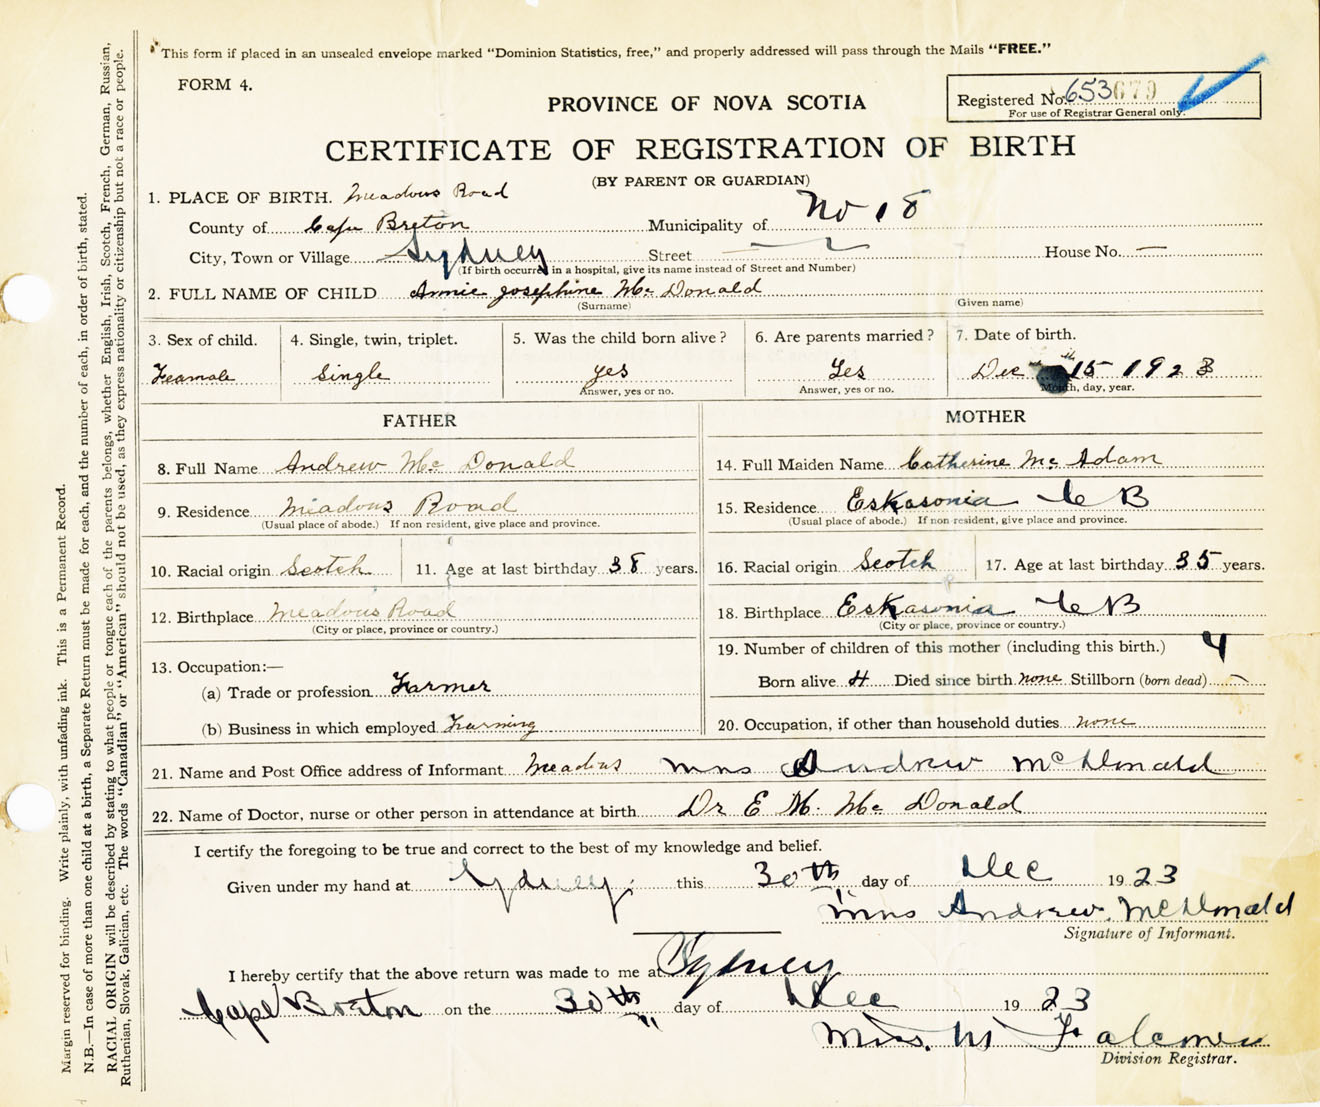 This form if placed in an unsealed envelope marked "Dominion Statistics, free," and properly addressed will pass through the Mails "FREE."
FORM 4.
Registered No. 653679
For use of Registrar General only.
PROVINCE OF NOVA SCOTIA
CERTIFICATE OF REGISTRATION OF BIRTH
(BY PARENT OR GUARDIAN)
1. PLACE OF BIRTH. Meadows Road
County of Cape Breton Municipality of No 18
City, Town or Village Sydney Street — House No. —
(If birth occurred in a hospital, give its name instead of Street and Number)
2. FULL NAME OF CHILD Annie Josephine Mc Donald
(Surname) (Given name)
3. Sex of child. 4. Single, twin, triplet. 5. Was the child born alive? 6. Are parents married? 7. Date of birth.
Feamale Single yes Yes Dec 15 1923
Answer, yes or no. Answer, yes or no. Month, day, year.
FATHER MOTHER
8. Full Name Andrew Mc Donald
14. Full Maiden Name Catherine Mc Adam
9. Residence Meadows Road
(Usual place of abode.) If non resident, give place and province.
15. Residence Eskasonia C B
(Usual place of abode.) If non resident, give place and province.
10. Racial origin Scotch 11. Age at last birthday 38 years.
16. Racial origin Scotch 17. Age at last birthday 35 years.
12. Birthplace Meadows Road
(City or place, province or country.)
18. Birthplace Eskasonia C B
(City or place, province or country.)
13. Occupation:—
(a) Trade or profession Farmer
(b) Business in which employed Farming
19. Number of children of this mother (including this birth.) 4
Born alive 4 Died since birth none Stillborn (born dead) —
20. Occupation, if other than household duties none
21. Name and Post Office address of Informant Meadows Mrs Andrew McDonald
22. Name of Doctor, nurse or other person in attendance at birth Dr E M. Mc Donald
I certify the foregoing to be true and correct to the best of my knowledge and belief.
Given under my hand at Sydney this 30th day of Dec 1923
Mrs Andrew McDonald
Signature of Informant.
I hereby certify that the above return was made to me at Sydney
Cape Breton on the 30th day of Dec 1923
M
Division Registrar.
Margin reserved for binding. Write plainly, with unfading ink. This is a Permanent Record.
N.B.—In case of more than one child at a birth, a Separate Return must be made for each, and the number of each, in order of birth, stated.
RACIAL ORIGIN will be described by stating to what people or tongue each of the parents belongs, whether English, Irish, Scotch, French, German, Russian,
Ruthenian, Slovak, Galician, etc. The words "Canadian" or "American" should not be used, as they express nationality or citizenship but not a race or people.